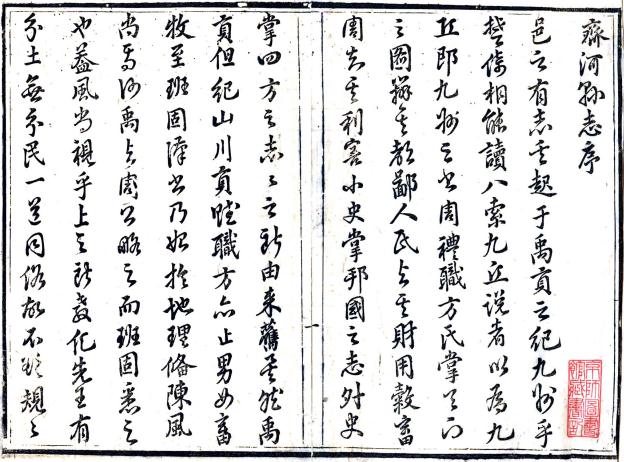 齊河縣志序
邑之有志其起于禹貢之紀九州乎
楚倚相能讀八索九丘說者以為九
丘即九州之書周禮職方氏掌天下
之圖辨其都鄙人民與其財用穀畜
周知其利害小史掌邦國之志外史
掌四方之志〻之所由來舊矣然禹
貢但紀山川貢賦職方亦止男女畜
牧至班固漢書乃始於地理備陳風
尚焉何禹與周公略之而班固悉之
也蓋風尚視乎上之所教化先王有
分土無分民一道同俗故不必規〻
京師圖書